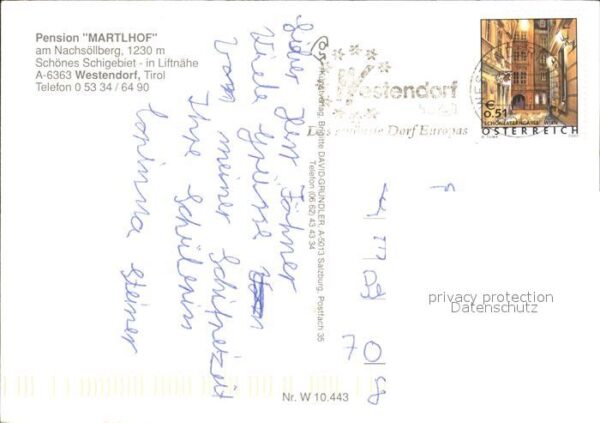 Pension "MARTLHOF"
am Nachsöllberg, 1230 m
Schönes Schigebiet - in Liftnähe
A-6363 Westendorf, Tirol
Telefon 0 53 34 / 64 90
Lieber Herr Föhner
Viele Grüsse
von meiner Schifreizeit
Ihre Schülerin
Corinna Steiner
Brigitte DAVID-GRÜNDLER, A-5013 Salzburg, Postfach 35
Telefon (06 62) 43 43 34
Westendorf
Dorf Europas
€ 0.51
SCHÖNLATERNGASSE WIEN
ÖSTERREICH
privacy protection
Datenschutz
Nr. W 10.443